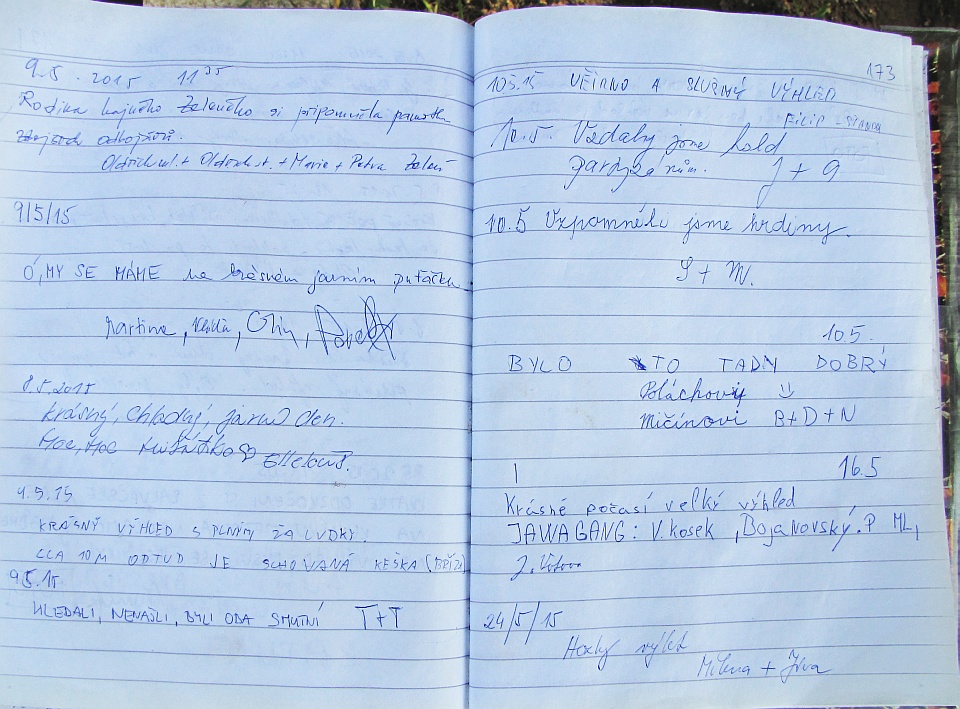 9.5. 2015 11 35
Rodina hajného Zeleného si připomněla památku
odbojářů.
Oldřich ml. + Oldřich st. + Marie + Petra
9/5/15
Ó, MY SE MÁME na krásném jarním
Martina, Olin, Pavel
8.5.2015
Krásný, chladný, jarní den.
Moc, Moc
9.5.15
KRÁSNÝ VÝHLED S PLNÝM ŽALUDKY.
CCA 10 M ODTUD JE SCHOVANÁ KEŠKA (BŘÍZA)
9.5.15
HLEDALI, NENAŠLI, BYLI OBA SMUTNÍ T+T
173
10.5.15 A SLUŠNÝ VÝHLED
FILIP
10.5. Vzdaly jsme hold
partyzánům. J + G
10.5 Vzpomněli jsme hrdiny.
S + M.
10.5.
BYLO TO TADY DOBRÝ
Poláchovi
Mičínovi B+D+N
16.5
Krásné počasí velký výhled
JAWAGANG: V. Kosek, Bojanovský. P ML,
24/5/15
Hezký výlet
Milena + Jiřina